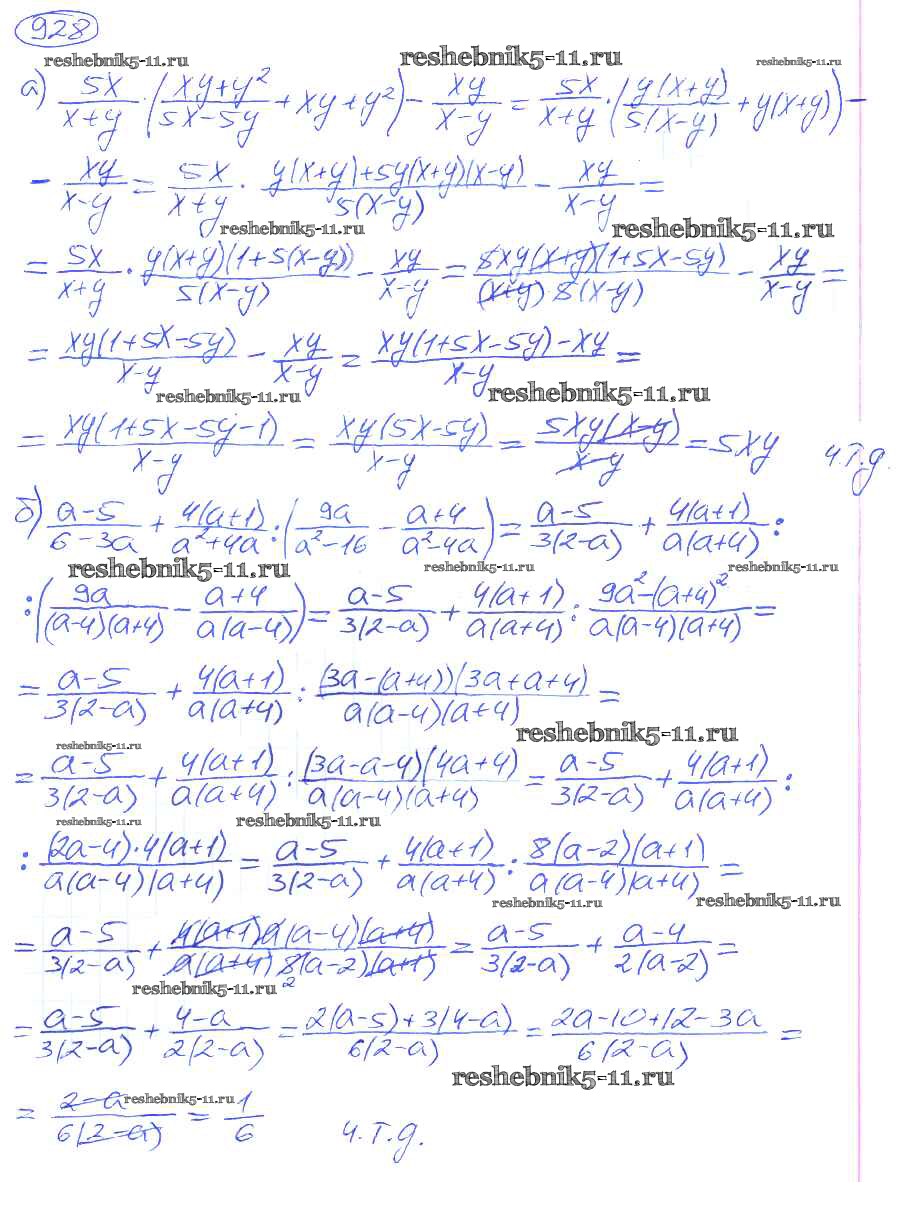 928
reshebnik5-11.ru reshebnik5-11.ru reshebnik5-11.ru
а) 5x/(x+y) · ((xy+y²)/(5x-5y) + xy+y²) - xy/(x-y) = 5x/(x+y) · (y(x+y)/5(x-y) + y(x+y)) -
- xy/(x-y) = 5x/(x+y) · (y(x+y)+5y(x+y)(x-y))/5(x-y) - xy/(x-y) =
reshebnik5-11.ru reshebnik5-11.ru
= 5x/(x+y) · y(x+y)(1+5(x-y))/5(x-y) - xy/(x-y) = 5xy(x+y)(1+5x-5y)/(x+y)5(x-y) - xy/(x-y) =
= xy(1+5x-5y)/(x-y) - xy/(x-y) = (xy(1+5x-5y)-xy)/(x-y) =
reshebnik5-11.ru reshebnik5-11.ru
= xy(1+5x-5y-1)/(x-y) = xy(5x-5y)/(x-y) = 5xy(x-y)/(x-y) = 5xy ч.т.д.
б) (a-5)/(6-3a) + 4(a+1)/(a²+4a) : (9a/(a²-16) - (a+4)/(a²-4a)) = (a-5)/3(2-a) + 4(a+1)/a(a+4) :
reshebnik5-11.ru reshebnik5-11.ru reshebnik5-11.ru
: (9a/(a-4)(a+4) - (a+4)/a(a-4)) = (a-5)/3(2-a) + 4(a+1)/a(a+4) : (9a²-(a+4)²)/a(a-4)(a+4) =
= (a-5)/3(2-a) + 4(a+1)/a(a+4) : (3a-(a+4))(3a+a+4)/a(a-4)(a+4) =
reshebnik5-11.ru
reshebnik5-11.ru
= (a-5)/3(2-a) + 4(a+1)/a(a+4) : (3a-a-4)(4a+4)/a(a-4)(a+4) = (a-5)/3(2-a) + 4(a+1)/a(a+4) :
reshebnik5-11.ru reshebnik5-11.ru
: (2a-4)·4(a+1)/a(a-4)(a+4) = (a-5)/3(2-a) + 4(a+1)/a(a+4) : 8(a-2)(a+1)/a(a-4)(a+4) =
reshebnik5-11.ru reshebnik5-11.ru
= (a-5)/3(2-a) + 4(a+1)a(a-4)(a+4)/a(a+4)8(a-2)(a+1) = (a-5)/3(2-a) + (a-4)/2(a-2) =
reshebnik5-11.ru 2
= (a-5)/3(2-a) + (4-a)/2(2-a) = (2(a-5)+3(4-a))/6(2-a) = (2a-10+12-3a)/6(2-a) =
reshebnik5-11.ru
reshebnik5-11.ru
= (2-a)/6(2-a) = 1/6 ч.т.д.